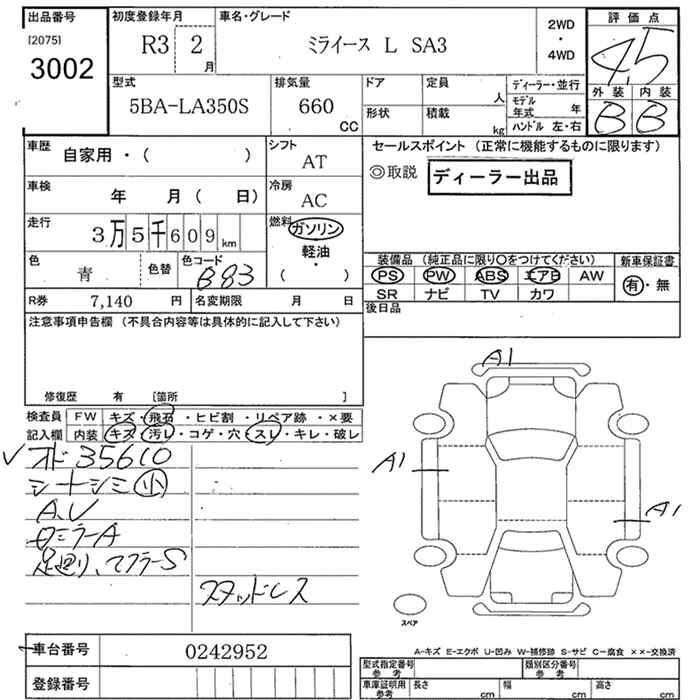 出品番号
[2075]
3002
初度登録年月
R3 2 月
車名・グレード
ミライース L SA3
2WD
・
4WD
評価点
4.5
外装 内装
B B
型式
5BA-LA350S
排気量
660
CC
ドア
定員
人
形状
積載
kg
ディーラー・並行
モデル年式 年
ハンドル 左・右
車歴
自家用・( )
シフト
AT
車検
年 月 ( 日)
冷房
AC
走行
3万5千609km
燃料
ガソリン
軽油
・
( )
色
青
色替
色コード
B83
R券 7,140 円
名変期限 月 日
セールスポイント (正常に機能するものに限ります)
◎取説
ディーラー出品
装備品 (純正品に限り○をつけてください)
新車保証書
PS PW ABS エアB AW
有・無
SR ナビ TV カワ
後日品
注意事項申告欄 (不具合内容等は具体的に記入して下さい)
修復歴 有 [箇所 ]
検査員記入欄
FW キズ・飛石・ヒビ割・リペア跡・×要
内装 キズ・汚レ・コゲ・穴・スレ・キレ・破レ
オド35610
シートシミ小
A、U
ロミラーA
足廻り、マフラーS
スタッドレス
A1
A1
A1
スペア
A-キズ E-エクボ U-凹み W-補修跡 S-サビ C-腐食 ××-交換済
車台番号 0242952
登録番号
型式指定番号参考
類別区分番号参考
車庫証明用参考 長さ cm 幅 cm 高さ cm